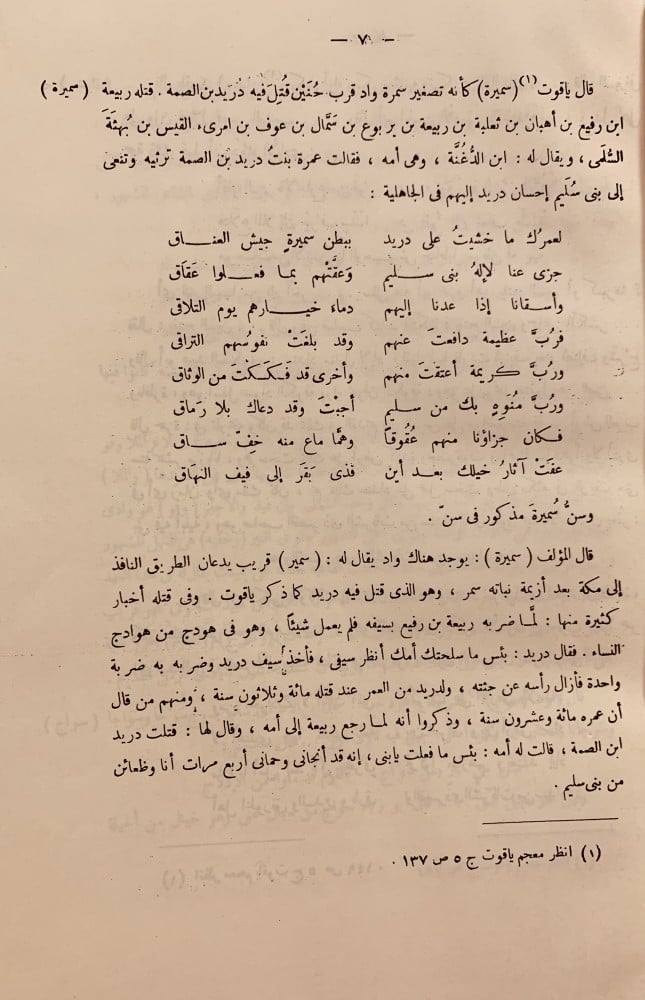 — ٧ —
قال ياقوت (١) (سميرة) كأنه تصغير سمرة واد قرب حُنَيْن قُتِلَ فيه دُرَيد بن الصمة . قتله ربيعة (سميرة)
ابن رفيع بن أهبان بن ثعلبة بن ربيعة بن يربوع بن سَمَّال بن عوف بن امرىء القيس بن بُهثَةَ
السُّلَمى ، ويقال له : ابن الدُّغُنَّة ، وهى أمه ، فقالت عمرة بنتُ دريد بن الصمة ترثيه وتنعى
إلى بنى سُلَيم إحسان دريد إليهم فى الجاهلية :
لعمرُك ما خشيتُ على دريد ببطن سميرةٍ جيش العناق
جزى عنا لإلهُ بنى سليم وَعقَّتْهم بما فعلوا عَقَاق
وأسقانا إذا عدنا إليهم دماء خيارهم يوم التلاقى
فرُبَّ عظيمة دافعتَ عنهم وقد بلغَتْ نفوسُهم التراقى
ورُبَّ كريمة أعتقتَ منهم وأخرى قد فَكَكْتَ من الوثاق
ورُبَّ مُنَوِهٍ بك من سليم أجبْتَ وقد دعاك بلا رَماق
فكان جزاؤنا منهم عُقُوقاً وهمَّا ماع منه خِفِّ ساق
عفَتْ آثارُ خيلك بعد أين فذى بَقَرَ إلى فيف النهاق
وسنُّ سُميرةَ مذكور فى سنّ .
قال المؤلف (سميرة) : يوجد هناك واد يقال له : (سمير) قريب يدعان الطريق النافذ
إلى مكة بعد أزيمة نباته سمر ، وهو الذى قتل فيه دريد كما ذكر ياقوت . وفى قتله أخبار
كثيرة منها : لمَّا ضربه ربيعة بن رفيع بسيفه فلم يعمل شيئاً ، وهو فى هودج من هوادج
النساء . فقال دريد : بئس ما سلحتك أمك أنظر سيفى ، فأخذ سيف دريد وضربه به ضربة
واحدة فأزال رأسه عن جثته ، ولدريد من العمر عند قتله مائة وثلاثون سنة ، ومنهم من قال
أن عمره مائة وعشرون سنة ، وذكروا أنه لما رجع ربيعة إلى أمه ، وقال لها : قتلت دريد
ابن الصمة ، قالت له أمه : بئس ما فعلت يابنى ، إنه قد أنجانى وحمانى أربع مرات أنا وظعائن
من بنى سليم .
(١) انظر معجم ياقوت ج ٥ ص ١٣٧ .